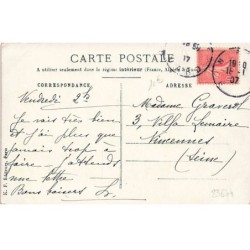 CARTE POSTALE
A utiliser seulement dans le régime intérieur (France, Algérie
CORRESPONDANCE
ADRESSE
Vendredi 2h
Je vais très bien
et j'ai plus que
jamais trop à
faire - J'attends
une lettre
Bons baisers
Madame
3, Villa Lemaire
Vincennes
(Seine)